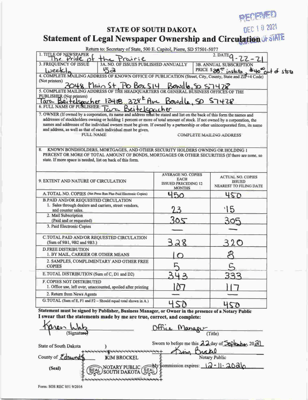 RECEIVED
DEC 10 2021
STATE OF SOUTH DAKOTA
Statement of Legal Newspaper Ownership and Circulation
Return to: Secretary of State, 500 E. Capitol, Pierre, SD 57501-5077
1. TITLE OF NEWSPAPER
The Pride of the Prairie
2. DATE
9-22-21
3. FREQUENCY OF ISSUE
Weekly
3A. NO. OF ISSUES PUBLISHED ANNUALLY
52
3B. ANNUAL SUBSCRIPTION PRICE
4. COMPLETE MAILING ADDRESS OF KNOWN OFFICE OF PUBLICATION (Street, City, County, State and Zip+4 Code) (Not printers)
5. COMPLETE MAILING ADDRESS OF THE HEADQUARTERS OR GENERAL BUSINESS OFFICES OF THE PUBLISHER (Not printers)
6. FULL NAME OF PUBLISHER
7. OWNER (If owned by a corporation, its name and address must be stated and list on the back of this form the names and addresses of stockholders owning or holding 1 percent or more of total amount of stock. If not owned by a corporation, the names and addresses of the individual owners must be given. If owned by a partnership or other unincorporated firm, its name and address, as well as that of each individual must be given.
FULL NAME
COMPLETE MAILING ADDRESS
8. KNOWN BONDHOLDERS, MORTGAGES, AND OTHER SECURITY HOLDERS OWNING OR HOLDING 1 PERCENT OR MORE OF TOTAL AMOUNT OF BONDS, MORTGAGES OR OTHER SECURITIES (If there are none, so state. If more space is needed, list on back of this form.
9. EXTENT AND NATURE OF CIRCULATION
AVERAGE NO. COPIES EACH ISSUE DURING PRECEDING 12 MONTHS
ACTUAL NO. COPIES ISSUED NEAREST TO FILING DATE
A. TOTAL NO. COPIES
450
450
B. PAID AND/OR REQUESTED CIRCULATION
1. Sales through dealers and carriers, street vendors, and counter sales
23
15
2. Mail Subscription (Paid and/or requested)
305
305
3. Paid Electronic Copies
C. TOTAL PAID AND/OR REQUESTED CIRCULATION
328
320
D. FREE DISTRIBUTION
1. BY MAIL, CARRIER OR OTHER MEANS
10
8
2. SAMPLES, COMPLIMENTARY AND OTHER FREE COPIES
5
5
E. TOTAL DISTRIBUTION (Sum of C, D1 and D2)
343
333
F. COPIES NOT DISTRIBUTED
1. Office use, left over, unaccounted, spoiled after printing
107
117
2. Return from News Agents
450
450
Statement must be signed by Publisher, Business Manager, or Owner in the presence of a Notary Public
I swear that the statements made by me are true, correct, and complete:
Office Manager
(Signature)
(Title)
State of South Dakota
Sworn to before me this 22 day of September 2021.
County of Edmunds
(Seal)
KIM BROCKEL
NOTARY PUBLIC
SOUTH DAKOTA
SEAL
SEAL
Kim Brockel
Notary Public
My commission expires: 12-11-2026